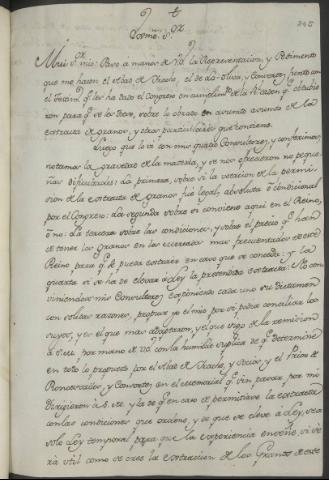 245
Mui S.or mio: Paso a manos de V.S. la Representacion, y Pedimento
que me hacen el Abad de Yrache, el de la Oliva, y
el que les ha dado el Congreso en de la
ron para q.e se les sobre lo obrado en asunto de la
extracta de granos, y otros particulares que contiene.
Luego que lo vi con mis quatro Consultores, y conferimos,
notamos la gravedad de la materia, y se nos ofrecieron no peque-
ñas dificultades: La primera, sobre si la votacion de la permi-
sion de la extracta de granos fue legal, absoluta ô condicional
por el Congreso: La segunda sobre si conviene aqui en el Reino,
ô no: La tercera sobre las condiciones, y sobre el precio q.e han
de tener los Granos en los mercados mas frequentados de este
Reino para q.e se pueda extraher en caso que se conceda: y la
quarta si se ha de elevar à Ley la pretendida extracta: No con-
viniendose mis Consultores exponiendo cada uno su dictamen
con solidas razones, propuse yo el mio por si podia conciliar los
suyos, y es el que mas adaptaron, y el que sigo de la remision
à S. por mano de V.S. con la humilde suplica de q.e determine
en todo lo propuesto por el Abad de Yrache, y Socios, y el Prior de
Roncesvalles, y Consortes en el memorial q.e sin pasar por mi
dirigieron à S. y la de q.e en caso de permitirse la extracta
con las condiciones que ordene, y de que se eleve à Ley, sea
solo Ley temporal para que la experiencia enseñe, si se-
rà util como se cree la extraccion de los Granos de este